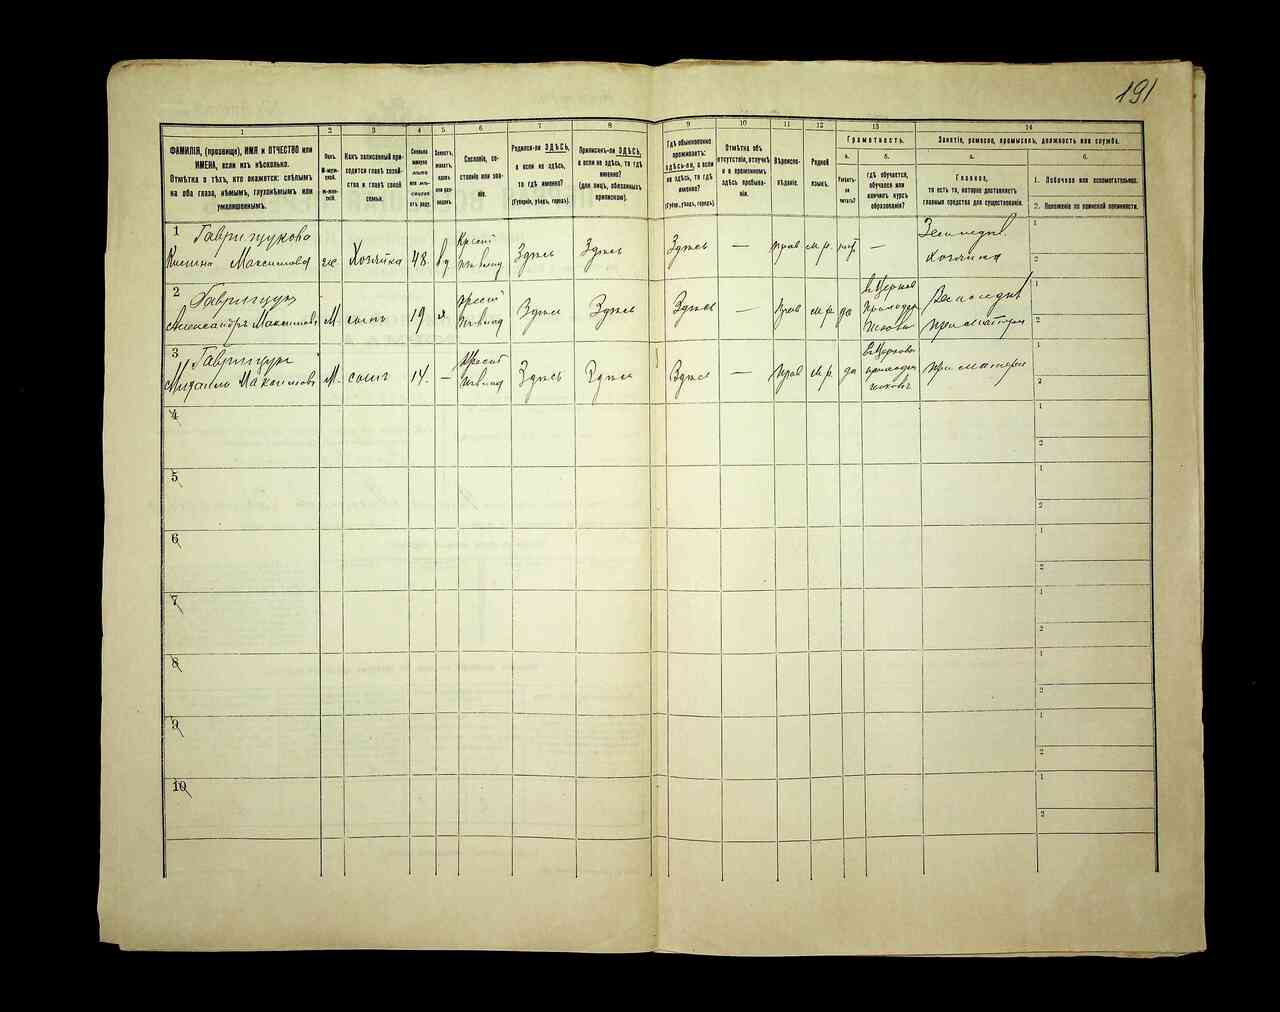 191
1
2
3
4
5
6
7
8
9
10
11
12
13
14
ФАМИЛІЯ, (прозвище), ИМЯ и ОТЧЕСТВО или
ИМЕНА, если ихъ нѣсколько.
Отмѣтка о тѣхъ, кто окажется: слѣпымъ
на оба глаза, нѣмымъ, глухонѣмымъ или
умалишеннымъ.
Полъ.
М-муж-
ской.
Ж-жен-
скій.
Какъ записанный при-
ходится главѣ хозяй-
ства и главѣ своей
семьи.
Сколько
минуло
лѣтъ
или мѣ-
сяцевъ
отъ роду.
Холостъ,
женатъ,
вдовъ
или раз-
веденъ.
Сословіе, со-
стояніе или зва-
ніе.
Родился-ли ЗДѢСЬ,
а если не здѣсь,
то гдѣ именно?
(Губернія, уѣздъ, городъ).
Приписанъ-ли ЗДѢСЬ,
а если не здѣсь, то гдѣ
именно?
(для лицъ, обязанныхъ
припискою).
Гдѣ обыкновенно
проживаетъ:
здѣсь-ли, а если
не здѣсь, то гдѣ
именно?
(Губер., уѣздъ, городъ).
Отмѣтка объ
отсутствіи, отлучкѣ
и о временномъ
здѣсь пребыва-
ніи.
Вѣроиспо-
вѣданіе.
Родной
языкъ.
Грамотность.
а.
Умѣетъ-
ли
читать?
б.
гдѣ обучается,
обучался или
кончилъ курсъ
образованія?
Занятіе, ремесло, промыселъ, должность или служба.
а.
Главное,
то есть то, которое доставляетъ
главныя средства для существованія.
б.
1. Побочное или вспомогательное.
2. Положеніе по воинской повинности.
1 Гаврищукова
Максимова же Хозяйка 48. вд Здѣсь Здѣсь Здѣсь — прав м.р. нѣт —
Хозяйка
1
2
2 Гаврищукъ
Александръ Максимовъ М сынъ 19 х Здѣсь Здѣсь Здѣсь — прав м.р. да
при матери
1
2
3 Гаврищукъ
Михаилъ Максимовъ М. сынъ 14. — Здѣсь Здѣсь Здѣсь — прав м.р. да
при матери
1
2
4
1
2
5
1
2
6
1
2
7
1
2
8
1
2
9
1
2
10
1
2